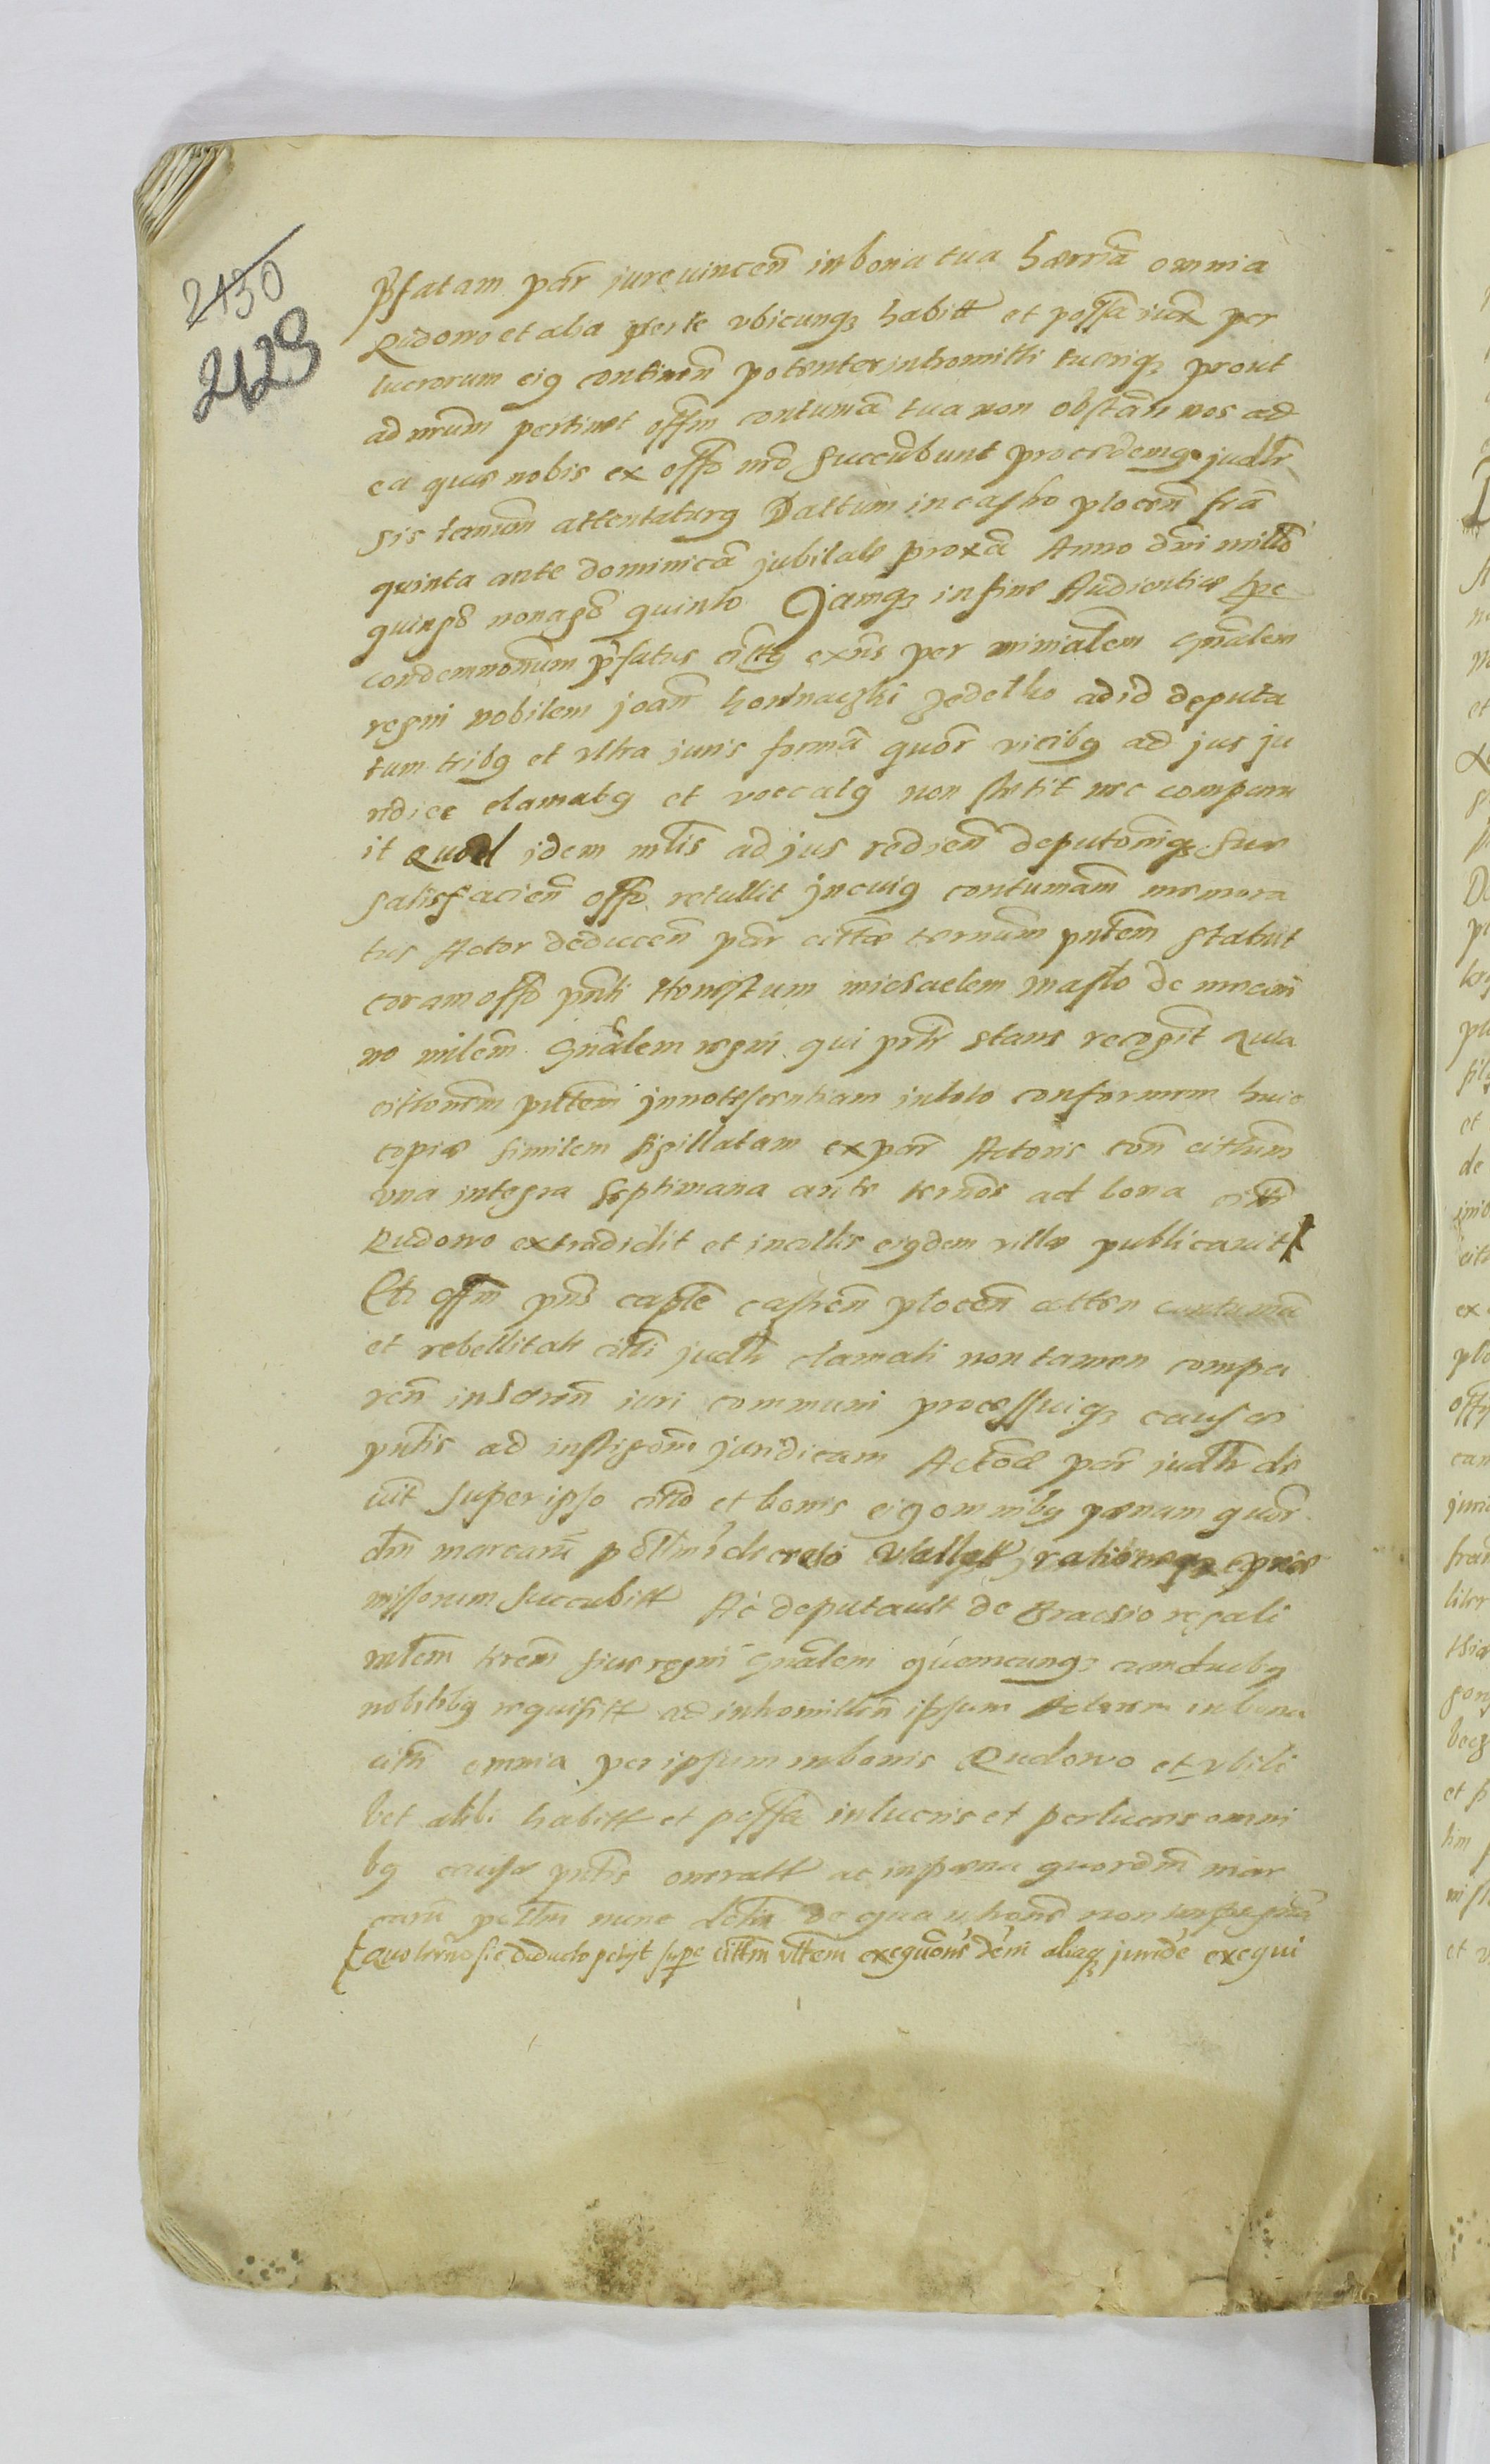 2130
2129
pfatam par jure vincen in bona tua haeria omnia
Rudowo et alia per te ubicunq habitt et possa iux per
lucrorum eig continen potenter intromitti tueriq prout
ad nrum pertinet offm contuma tua non obstan nos ad
ea quae nobis ex offo nro succubunt procedemq judlr
sis taman attentaturg Dattum in castro plocen fra
quinta ante dominica jubilate proxa Anno dni millo
quingo nonagō quinto Jamq in fine Audientiae hec
condemnonum pfatus citty exns per minialem Gnalem
regni nobilem joan zedetko ad id deputa
tum tribg et ultra juris forma quor vicibg ad jus ju
ridice clamatg et voccatg non stetit nec comparu
it Quod idem mlis ad jus redien deputoniq suae
satisfacien offo retullit jn cuig contumam memora
tus Actor deducen par cittae ternum pntem statuit
coram offo pnti Honestum micsaelem maslo de
no milem Gnalem regni qui pntr stans recogit Quia
cittonem pntem jnnotescentiam in toto conformem huic
copiae similem sigillatam ex par Actoris con cittum
una integra septimana ante termos ad bona citti
Rudowo extradidit et in illis eigdem villae publicavit
Et offm pns captle castren plocen atten contuma
et rebellitate citti judlr clamati non tamen compa
ren inhaeren iuri communi processuiq causae
pntis ad instigom juridicam Actoae par judlr de
vit super ipso citto et bonis eig omnibg paenam quor
dm marcaru decreto rationeq prae
missorum succubitt Ac deputavit de Bracsio regali
mlem trem sive regni Gnalem quemcunq cum duobg
nobilibg requisitt ad intromitten ipsum Actorem in bona
citti omnia per ipsum in bonis Rudowo et ubili
bet alibi habitt et possa in lucris et per lucris omni
bg causae pntis oneratt ac in paena quordm mar
caru nunc de qua non
quo termo sic deducto petyt supe cittm ulttem exequonis dem aliaq juridce exequi